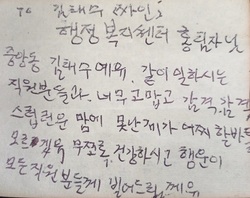 To 김태수 (사인)
행정 복지센터 홍팀장님
중앙동 김태수예유. 같이일하시는
직원분들과. 너무고맙고 감격,감격
스럽런운 맘에 못난제가 어찌 할바를
모르겠유 무쪼록, 건강하시고 행운이
모든직원분들께 빌어드릴께유